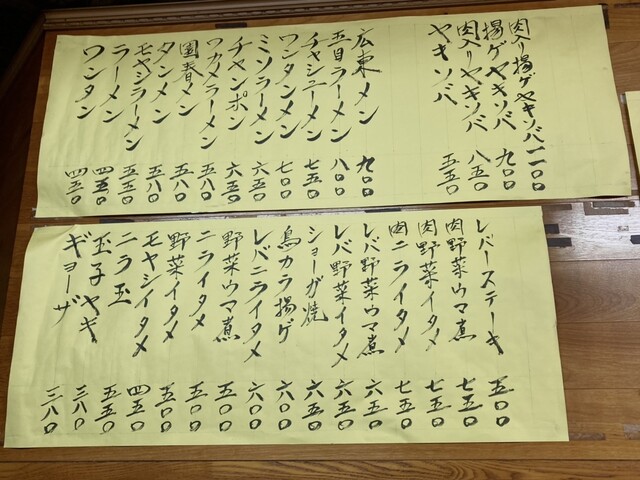 肉入り揚ゲヤキソバ 一一〇〇
揚ゲヤキソバ 九〇〇
肉入りヤキソバ 八五〇
ヤキソバ 五五〇
広東メン 九〇〇
五目ラーメン 八〇〇
チャシューメン 七五〇
ワンタンメン 七〇〇
ミソラーメン 六五〇
チャンポン 六五〇
ワカメラーメン 五八〇
園春メン 五八〇
タンメン 五八〇
モヤシラーメン 五五〇
ラーメン 四五〇
ワンタン 四五〇
レバーステーキ 五〇〇
肉野菜ウマ煮 七五〇
肉野菜イタメ 七五〇
肉ニライタメ 七五〇
レバ野菜ウマ煮 六五〇
レバ野菜イタメ 六五〇
ショーガ焼 六五〇
鳥カラ揚ゲ 六〇〇
レバニライタメ 六〇〇
野菜ウマ煮 五〇〇
ニライタメ 五〇〇
野菜イタメ 五〇〇
モヤシイタメ 四五〇
ニラ玉 五五〇
玉子ヤキ 三八〇
ギョーザ 三八〇